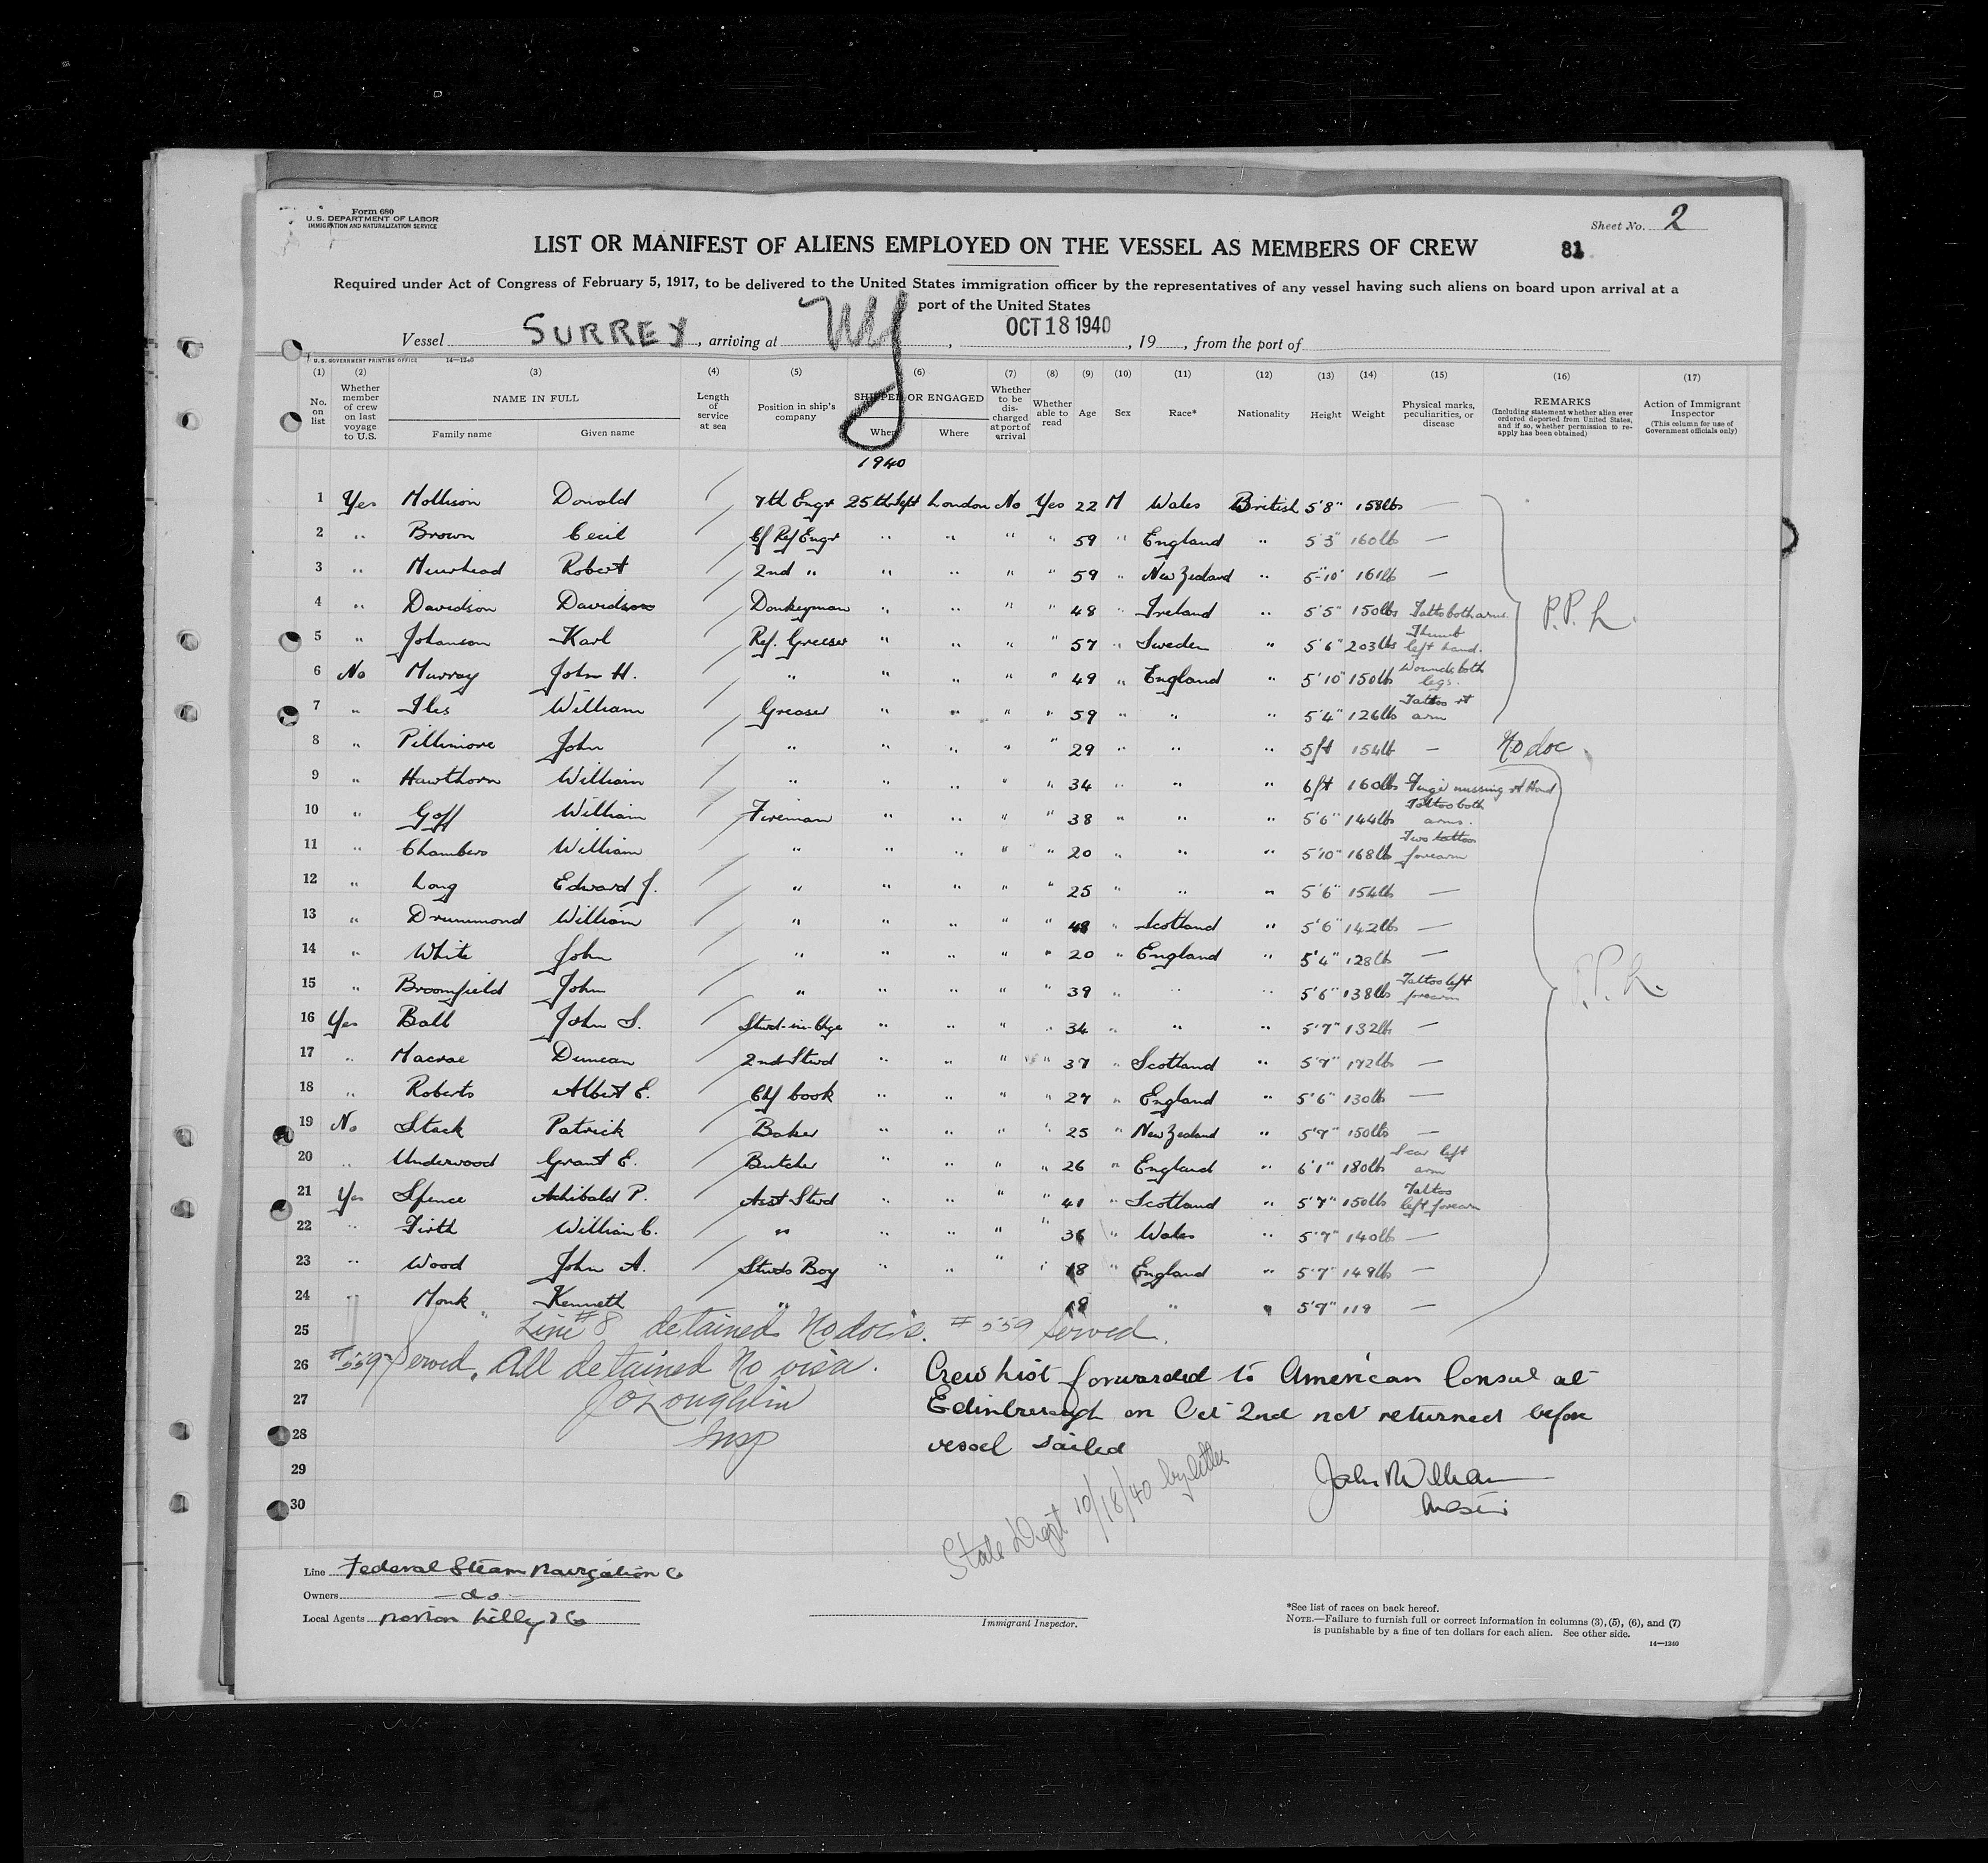 Form 680
U.S. DEPARTMENT OF LABOR
IMMIGRATION AND NATURALIZATION SERVICE
Sheet No. 2
LIST OR MANIFEST OF ALIENS EMPLOYED ON THE VESSEL AS MEMBERS OF CREW
81
Required under Act of Congress of February 5, 1917, to be delivered to the United States immigration officer by the representatives of any vessel having such aliens on board upon arrival at a
port of the United States
Vessel SURREY, arriving at NY, OCT 18 1940, 19, from the port of
U.S. GOVERNMENT PRINTING OFFICE 14—1240
(1) (2) (3) (4) (5) (6) (7) (8) (9) (10) (11) (12) (13) (14) (15) (16) (17)
No. on list
Whether member of crew on last voyage to U.S.
NAME IN FULL
Family name
Given name
Length of service at sea
Position in ship's company
SHIPPED OR ENGAGED
When
Where
Whether to be discharged at port of arrival
Whether able to read
Age
Sex
Race*
Nationality
Height
Weight
Physical marks, peculiarities, or disease
REMARKS
(Including statement whether alien ever ordered deported from United States, and if so, whether permission to reapply has been obtained)
Action of Immigrant Inspector
(This column for use of Government officials only)
1940
1 Yes Mollison Donald 7th Engr 25th Sept London No Yes 22 M Wales British 5'8" 158lbs —
2 " Brown Cecil Cf Ref Engr " " " " 59 " England " 5'3" 160lb —
3 " Muirhead Robert 2nd " " " " " 59 " New Zealand " 5'10" 161lb —
4 " Davidson Davidson Donkeyman " " " " 48 " Ireland " 5'5" 150lbs Tatto both arms
5 " Johanson Karl Ref. Greaser " " " " 57 " Sweden " 5'6" 203lbs Thumb left hand.
6 No Murray John H. " " " " " 49 " England " 5'10" 150lb Wounds both legs.
7 " Iles William Greaser " " " " 59 " " " 5'4" 126lb Tattoo rt arm
P.P.L.
8 " Pillimore John " " " " " 29 " " " 5ft 154lb — No doc
9 " Hawthorn William " " " " " 34 " " " 6ft 160lbs Finger missing rt Hand
10 " Goff William Fireman " " " " 38 " " " 5'6" 144lbs Tattoo both arms.
11 " Chambers William " " " " " 20 " " " 5'10" 168lb Two tattoos forearm
12 " Long Edward J. " " " " " 25 " " " 5'6" 154lb —
13 " Drummond William " " " " " 48 " Scotland " 5'6" 142lbs —
14 " White John " " " " " 20 " England " 5'4" 128lb —
15 " Broomfield John " " " " " 39 " " " 5'6" 138lbs Tattoo left forearm
P.P.L.
16 Yes Ball John S. Stwd-in-Chge " " " " 34 " " " 5'7" 132lb —
17 " Macrae Duncan 2nd Stwd " " " " 37 " Scotland " 5'7" 172lb —
18 " Roberts Albert E. Chf Cook " " " " 27 " England " 5'6" 130lb —
19 No Stack Patrick Baker " " " " 25 " New Zealand " 5'7" 150lbs —
20 " Underwood Grant E. Butcher " " " " 26 " England " 6'1" 180lb Scar left arm
21 Yes Spence Achibald P. Asst Stwd " " " " 41 " Scotland " 5'7" 150lbs Tattoo left forearm
22 " Firth William C. " " " " " 36 " Wales " 5'7" 140lb —
23 " Wood John A. Stwds Boy " " " " 18 " England " 5'7" 149lb —
24 " Monk Kenneth " 18 " " 5'9" 119 —
25 Line #8 detained No doc's. #559 Served.
26 #559 Served. All detained No visa.
27 J O'Loughlin
28 Insp
29
30
Crew List forwarded to American Consul at
Edinburgh on Oct 2nd not returned before
vessel sailed
John Williams
Master
State Dept 10/18/40 by letter
Line Federal Steam Navigation Co
Owners — do —
Local Agents Norton Lilly & Co
Immigrant Inspector.
*See list of races on back hereof.
NOTE.—Failure to furnish full or correct information in columns (3), (5), (6), and (7)
is punishable by a fine of ten dollars for each alien. See other side.
14—1240